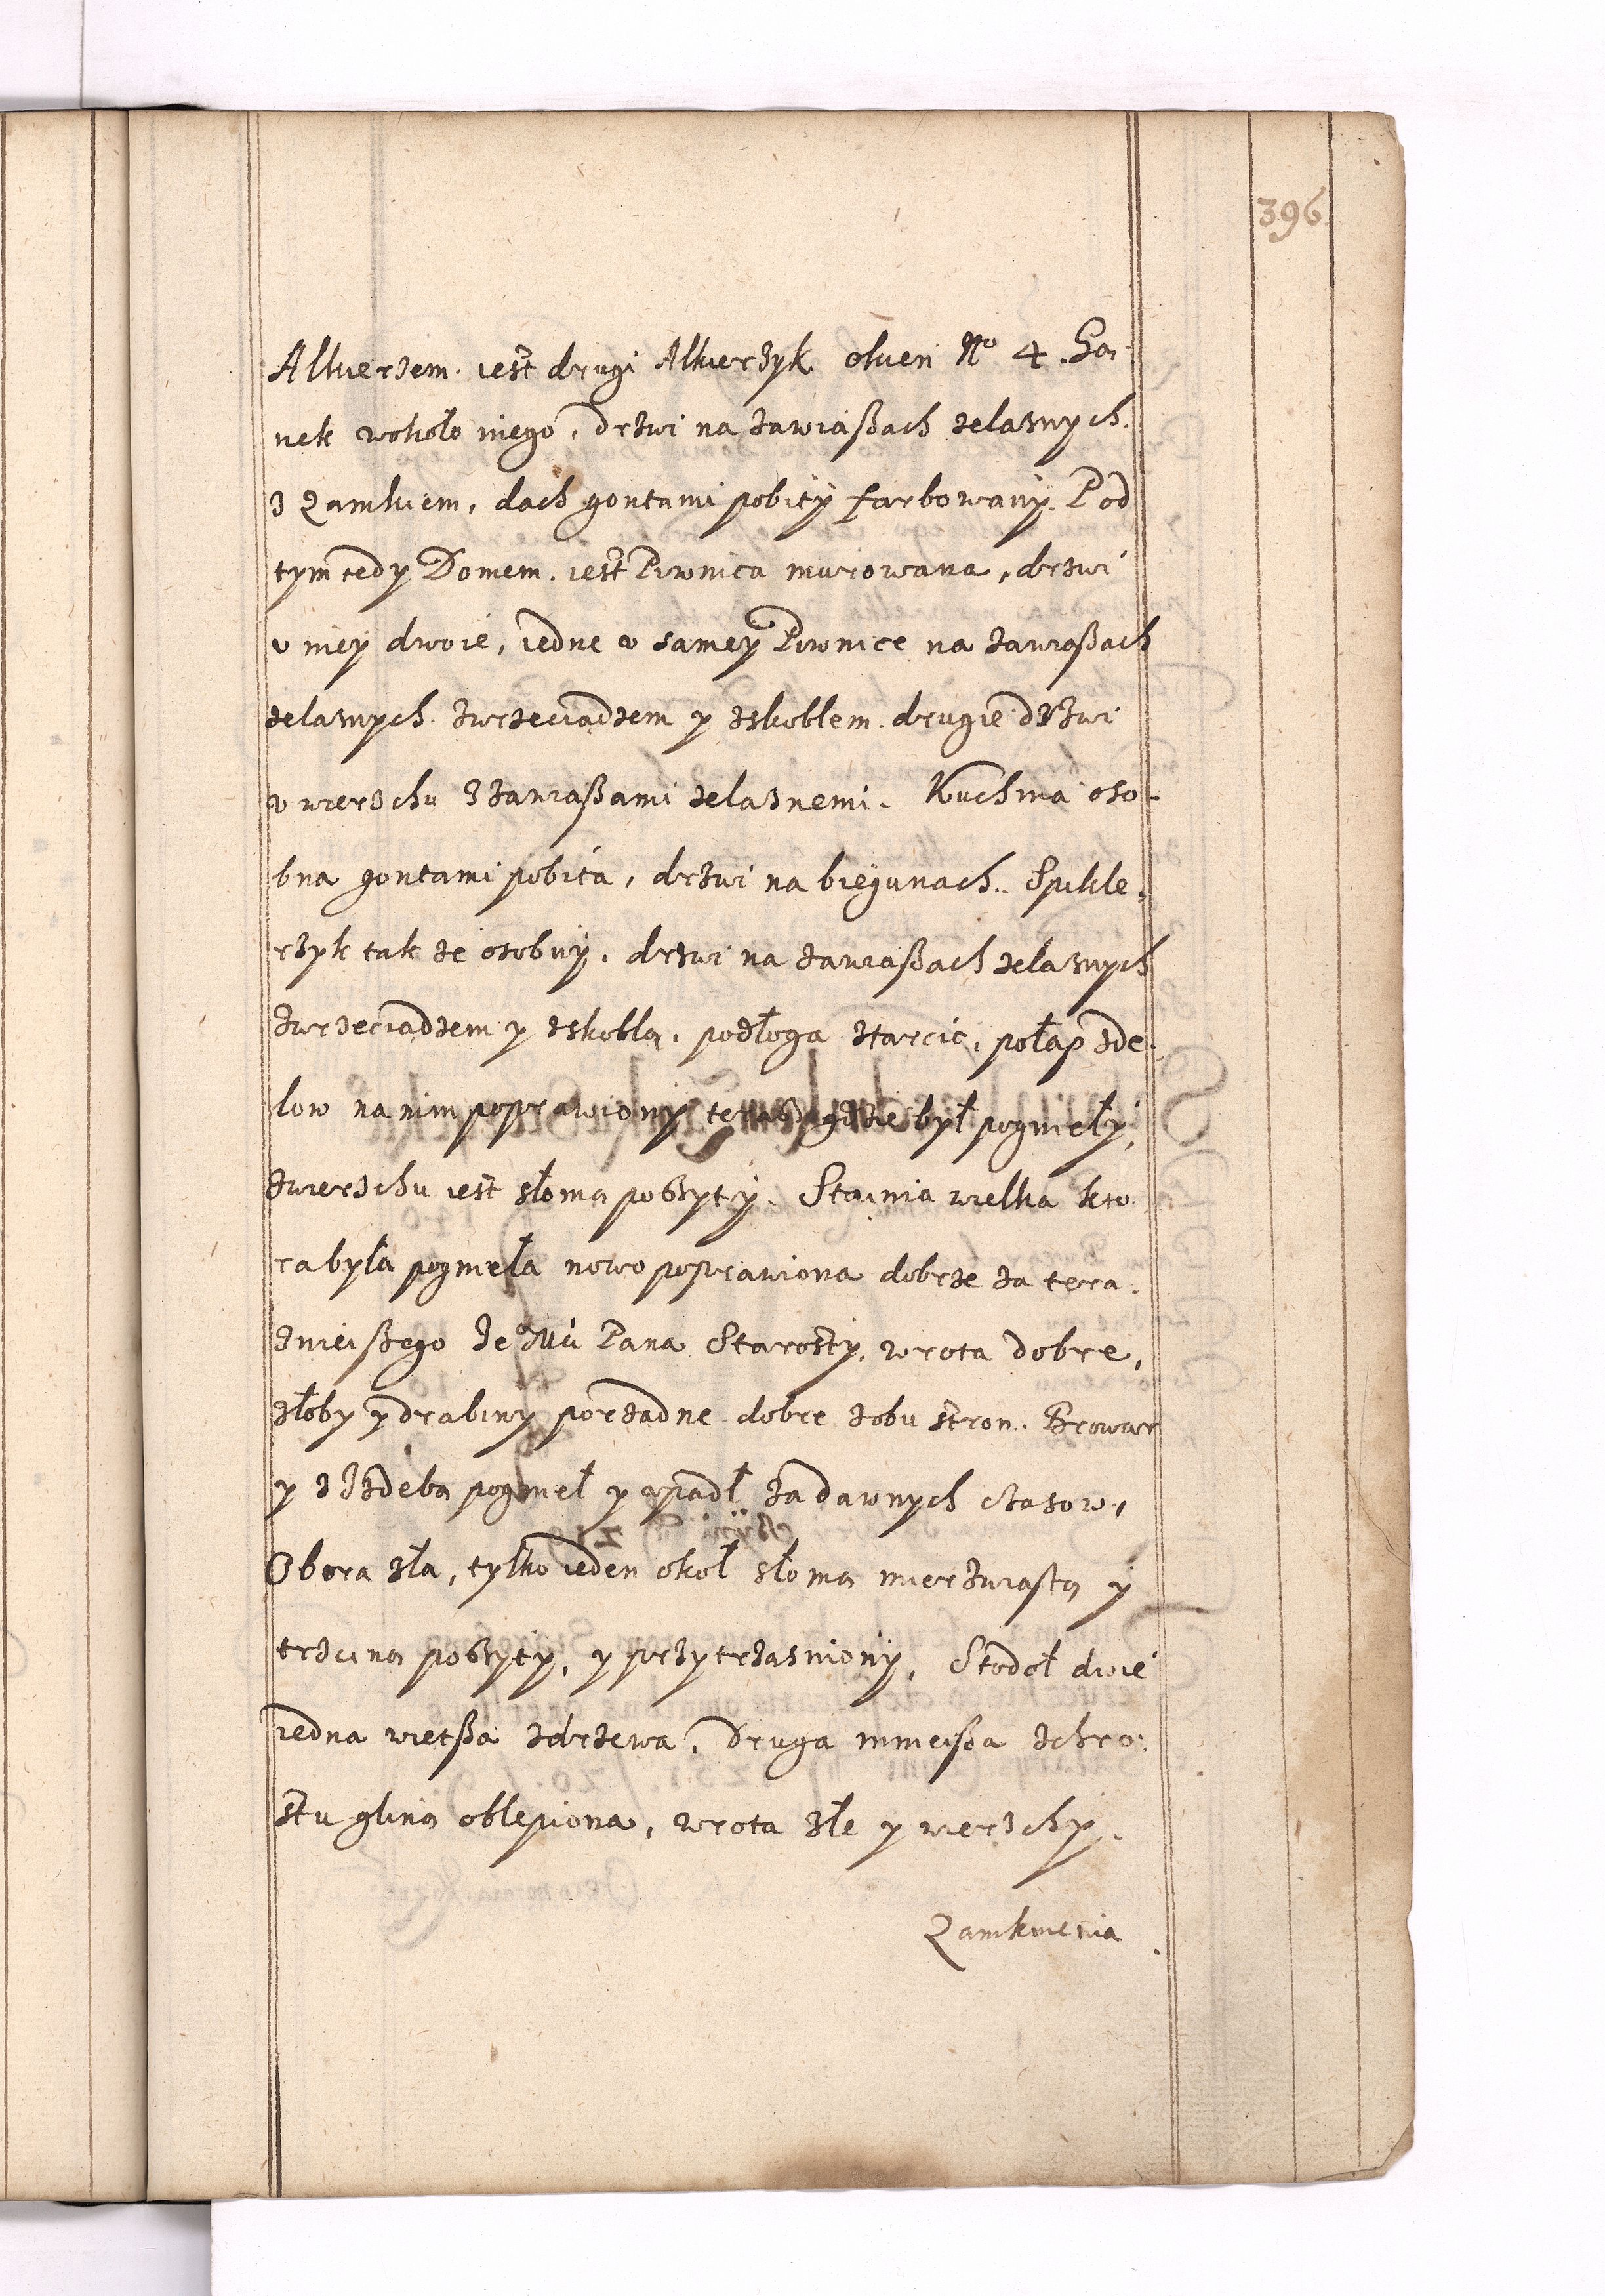 396
Alkierzem. iest drugi Alkierzyk okien No 4. Ga-
nek wokoło niego, drzwi na zawiaßach zelaznych.
z Zamkiem, dach gontami pobity farbowany. Pod
tym tedy Domem. iest Piwnica murowana, drzwi
v niey dwoie, iedne v samey Piwnice na zawiaßach
zelaznych. zwrzeciadzem y zskoblem. drugie drzwi
v wierzchu z zawiaßami zelaznemi. Kuchnia oso-
bna gontami pobita, drzwi na biegunach. Spikle-
rzyk tak ze osobny, drzwi na zawiaßach zelaznych
zwrzeciadzem y zskoblą, podłoga ztarcic, połap zde-
low na nim poprawiony teraz gdzie był pogniełÿ,
zwierzchu iest słomą poßyty. Stainia wielka kto-
ra była pogniełа nowo poprawiona dobrze za tera-
znieißego Je Mci Pana Starosty, wrota dobre,
złoby y drabiny porzadne dobre zobu stron. Browar
y z Izdebą pognieł y vpadł za dawnych czasow,
Obora zła, tylko ieden okoł słomą mierzwiastą y
trzciną poßyty, y przytrzasniony, Stodoł dwie
iedna wietßa zdrzewa, druga mnieißa zchro-
stu gliną oblepiona, wrota złe y wierzchy.
Zamknienia